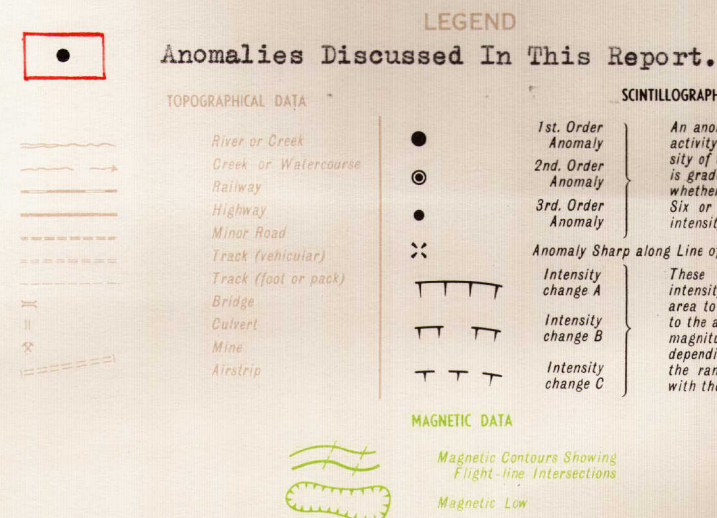 LEGEND
Anomalies Discussed In This Report.
TOPOGRAPHICAL DATA
River or Creek
Creek or Watercourse
Railway
Highway
Minor Road
Track (vehicular)
Track (foot or pack)
Bridge
Culvert
Mine
Airstrip
SCINTILLOGRAPH
1st. Order
Anomaly
2nd. Order
Anomaly
3rd. Order
Anomaly
An anom
activity
sity of
is grad
whether
Six or
intensit
Anomaly Sharp along Line of
Intensity
change A
Intensity
change B
Intensity
change C
These
intensity
area to
to the a
magnitu
dependi
the ran
with the
MAGNETIC DATA
Magnetic Contours Showing
Flight-line Intersections
Magnetic Low